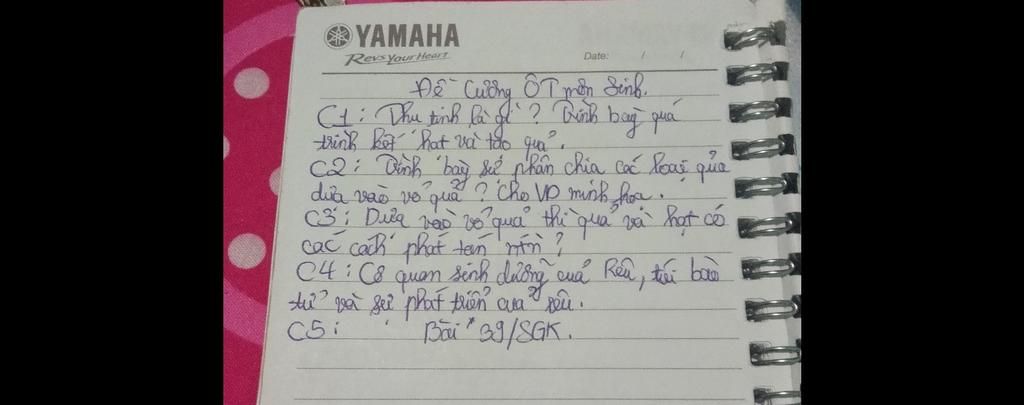 YAMAHA
Revs Your Heart
Date: / /
Đề Cương ÔT môn Sinh.
C1: Thụ tinh là gì? Trình bày quá
trình kết hạt và tạo quả.
C2: Trình bày sự phân chia các loại quả
dựa vào vỏ quả? Cho VD minh họa.
C3: Dựa vào vỏ quả thì quả và hạt có
các cách phát tán nào?
C4: Cơ quan sinh dưỡng của Rêu, túi bào
tử và sự phát triển của rêu.
C5: Bài 39/SGK.